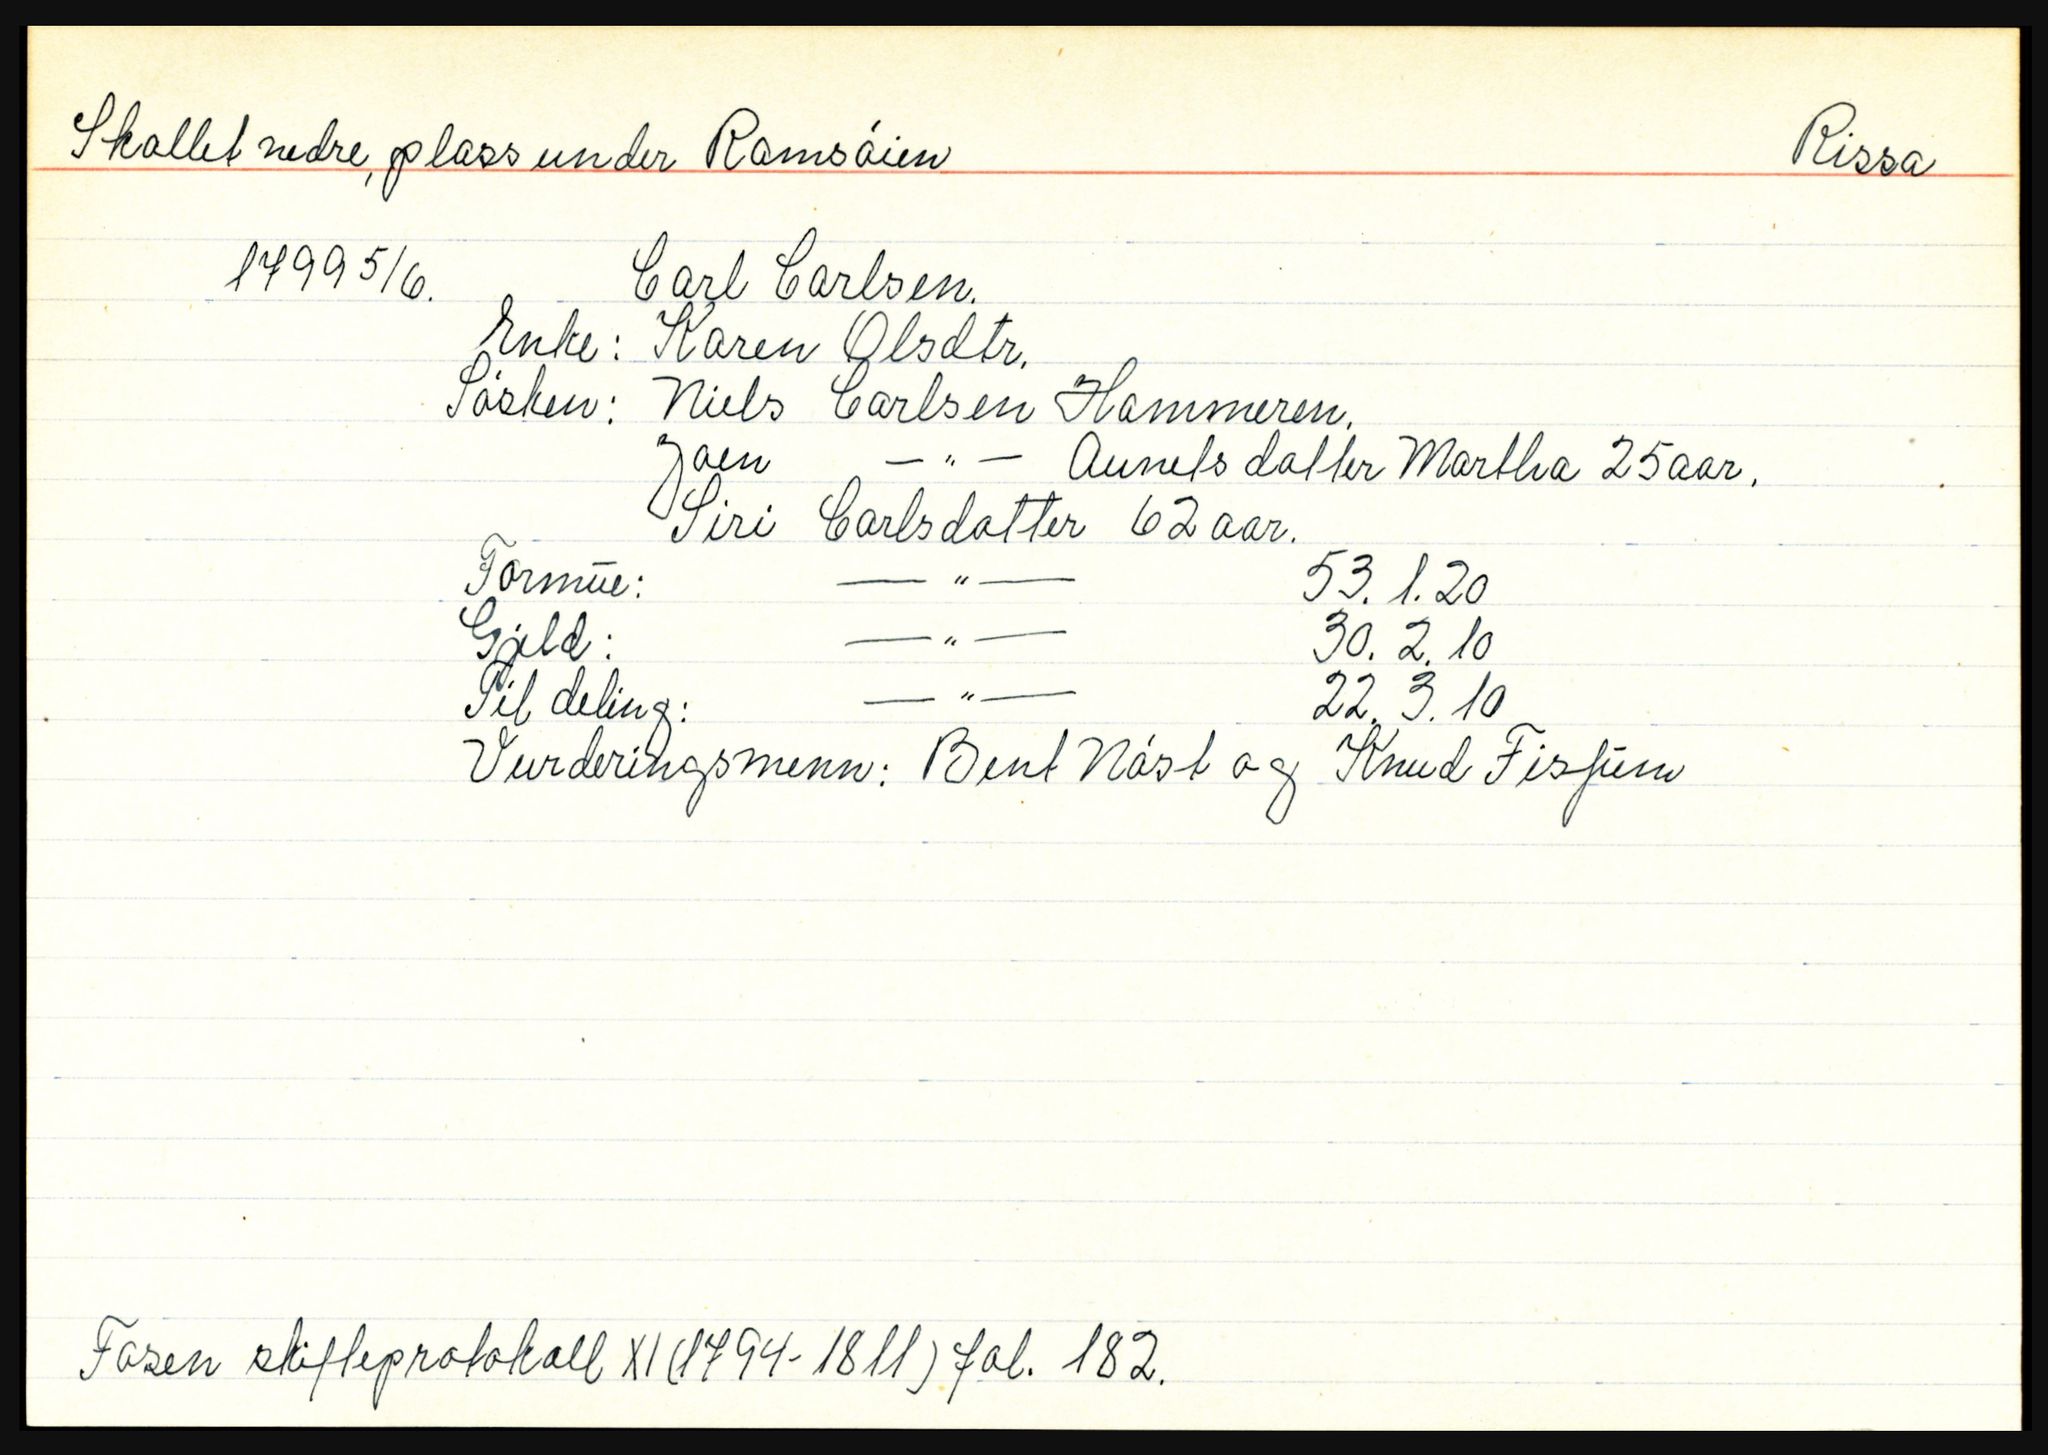 Skallet nedre, plass under Ramsóien Rissa
1799 5/6. Carl Carlsen.
Enke: Karen Olsdtr.
Sósken: Niels Carlsen Hammeren.
Joen — " — Aunets datter Martha 25 aar.
Siri Carlsdatter 62 aar.
Formūe: — " — 53. 1. 20
Gjeld: — " — 30. 2. 10
Til deling: — " — 22. 3. 10
Vurderingsmenn: Bent Nóst og Knud Fisfūm
Fosen skifteprotokoll XI (1794-1811) fol. 182.